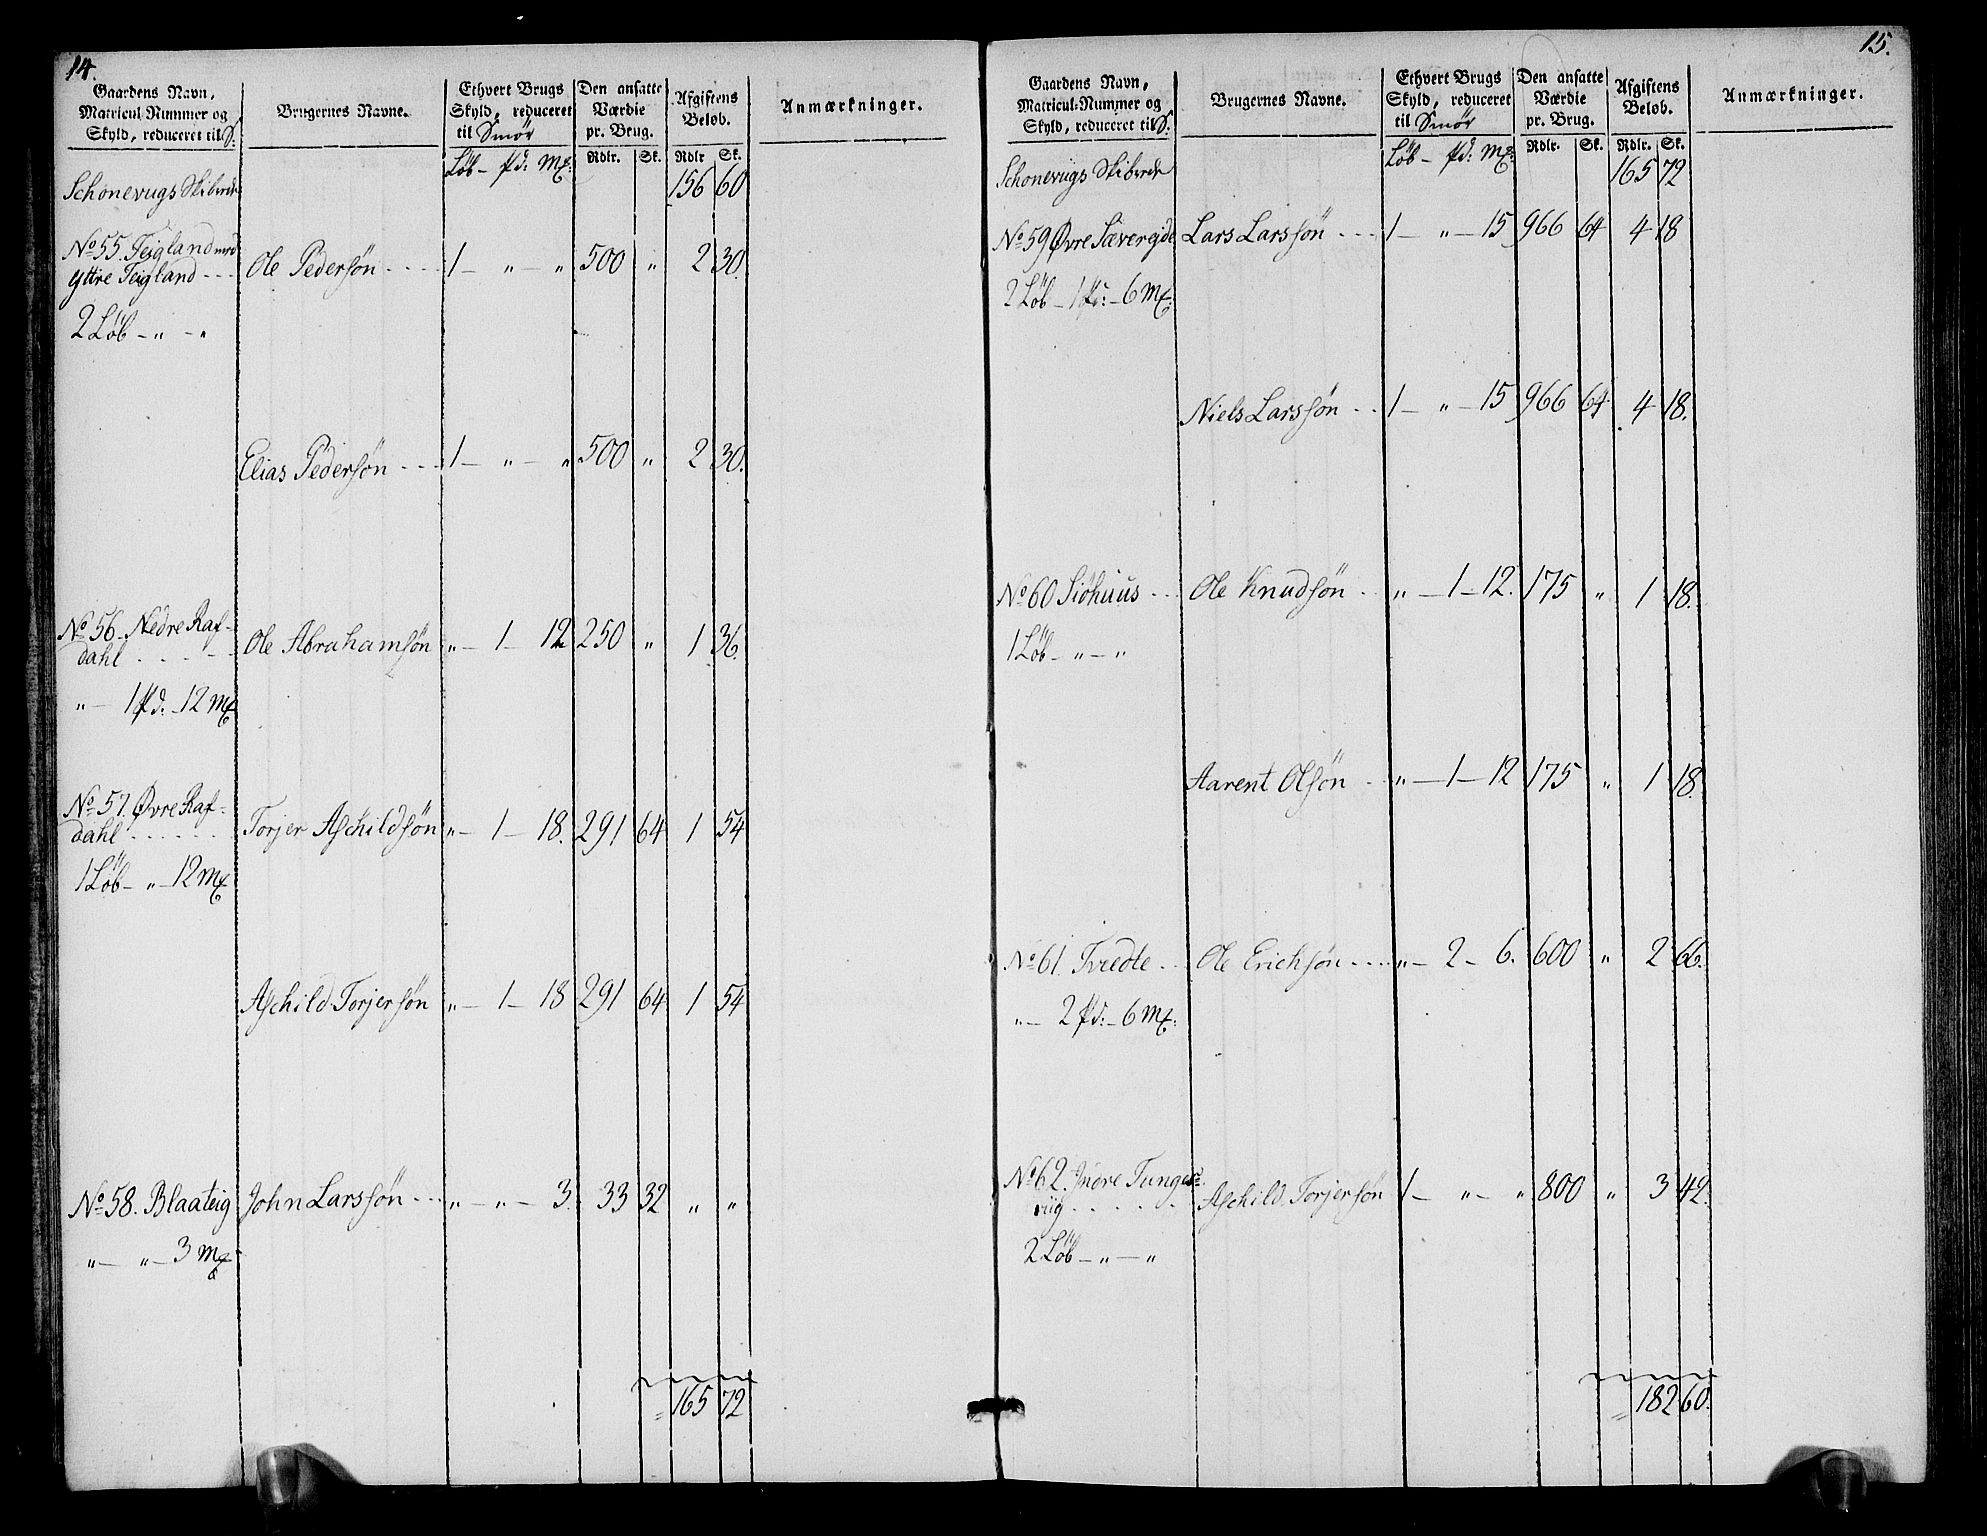 14.
Gaardens Navn, Matricul-Nummer og Skyld, reduceret til S: | Brugernes Navne. | Ethvert Brugs Skyld, reduceret til Smör | Den ansatte Værdie pr. Brug. | Afgiftens Beløb. | Anmærkninger.
Löb – pd: mk: | Rdlr. | Sk. | Rdlr | Sk.
Schonevugs Skibrede 156 60
No 55. Teigland med
Yttre Teigland - - - Ole Pedersön - - - - 1 – „ – „ 500 „ 2 30.
2 Löb – „ – „
Elias Pedersön - - - 1 – „ – „ 500 „ 2 30.
No 56. Nedre Raf-
dahl . . . . . Ole Abrahamsön „ – 1 – 12 250 „ 1 36.
„ – 1 pd: – 12 mk
No 57. Øvre Raf-
dahl . . . . . . Torjer Aschildsön „ – 1 – 18. 291 64 1 54
1 Löb – „ – 12 mk
Aschild Torjersön „ – 1 – 18 291 64 1 54
No 58. Blaateig John Larssön - - - „ – „ – 3. 33 32 „ „
„ – „ – 3 mk
= 165 72
15.
Gaardens Navn, Matricul-Nummer og Skyld, reduceret til S: | Brugernes Navne. | Ethvert Brugs Skyld, reduceret til Smör | Den ansatte Værdie pr. Brug. | Afgiftens Beløb. | Anmærkninger.
Löb – pd: mk: | Rdlr. | Sk. | Rdlr. | Sk.
Schonevugs Skibrede 165 72
No 59 Øvre Sæverejde Lars Larssön - - - 1 – „ – 15 966 64 4 18
2 Löb – 1 pd: – 6 mk:
Niels Larssön - - 1 – „ – 15 966 64 4 18.
No 60 Siöhuus - - Ole Knudsön - - „ – 1 – 12. 175 „ 1 18.
1 Löb – „ – „
Aarent Olsön - - „ – 1 – 12 175 „ 1 18.
No 61. Tvedte - - Ole Erichsön - - - - „ – 2 – 6. 600 „ 2 66.
„ – 2 pd: – 6 mk:
No 62. Indre Tunges-
viig . . . . . . Aschild Torjersön 1 – „ – „ 800 „ 3 42.
2 Löb – „ – „
= 182 60.